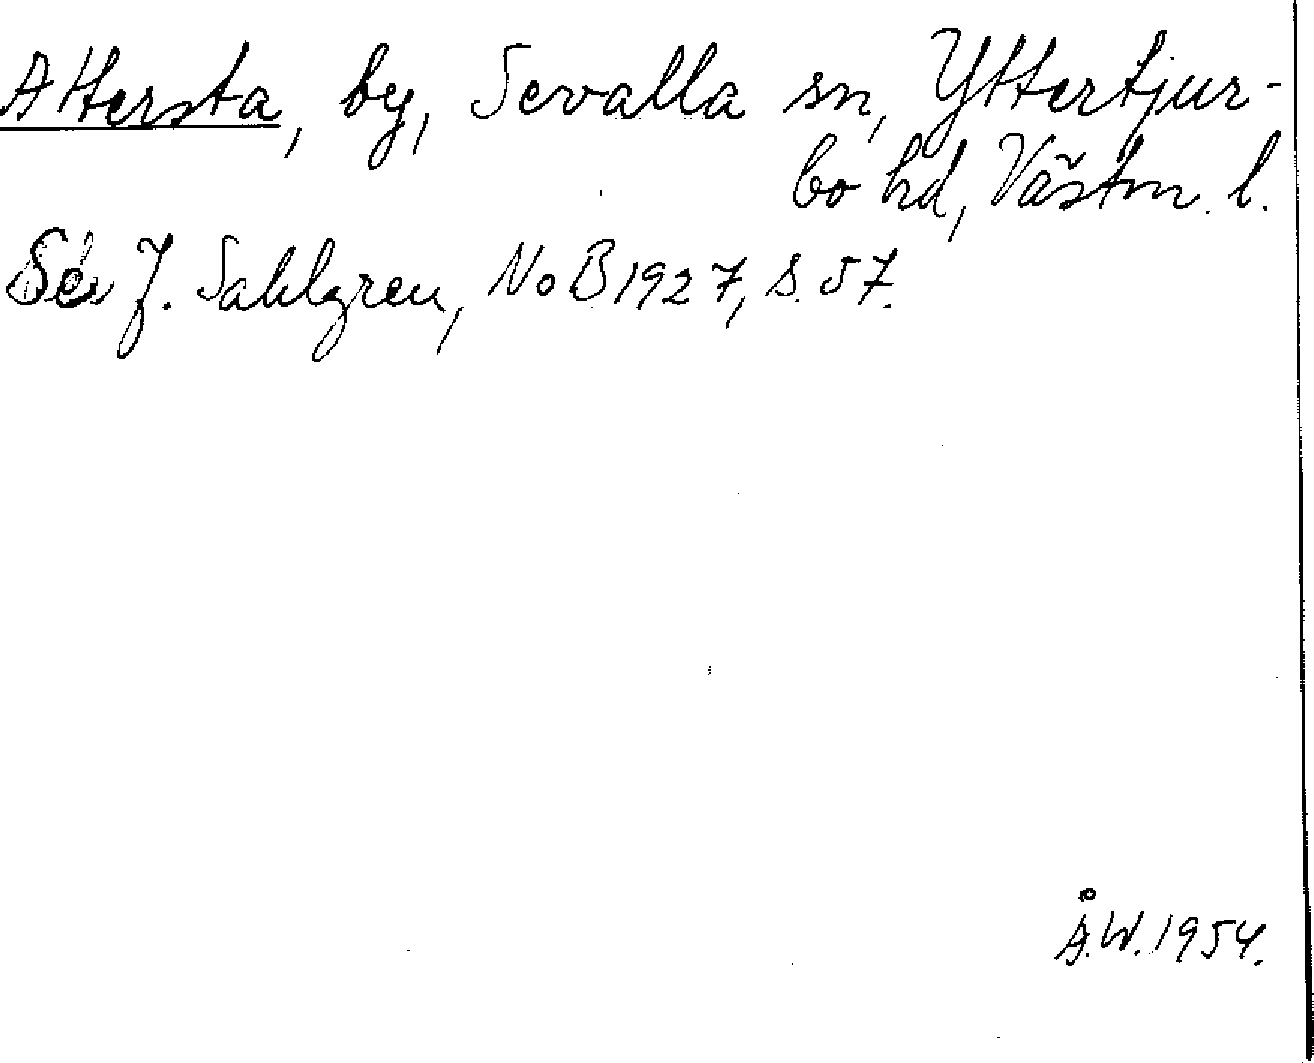 Attersta, by, Sevalla sn, Yttertjur-
bo hd, Västm. l.
Se J. Sahlgren, NoB 1927, s. 57.
Å.W. 1954.